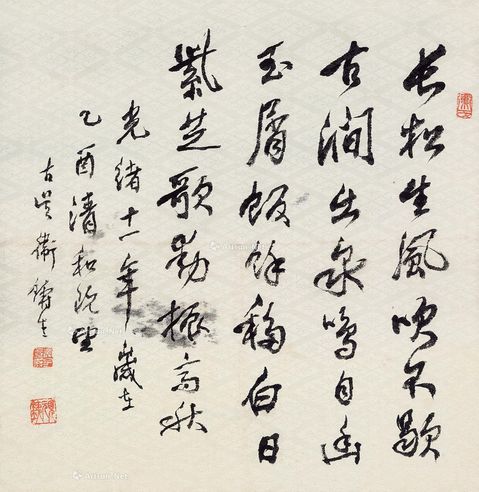 長松生風吹不歇
古澗出泉鳴自幽
玉屑飯餘稱白日
紫芝歌動振高秋
光緒十一年歲在
乙酉清和既望
古吳衛鑄生
Artron.Net
Artron.Net
Artron.Net